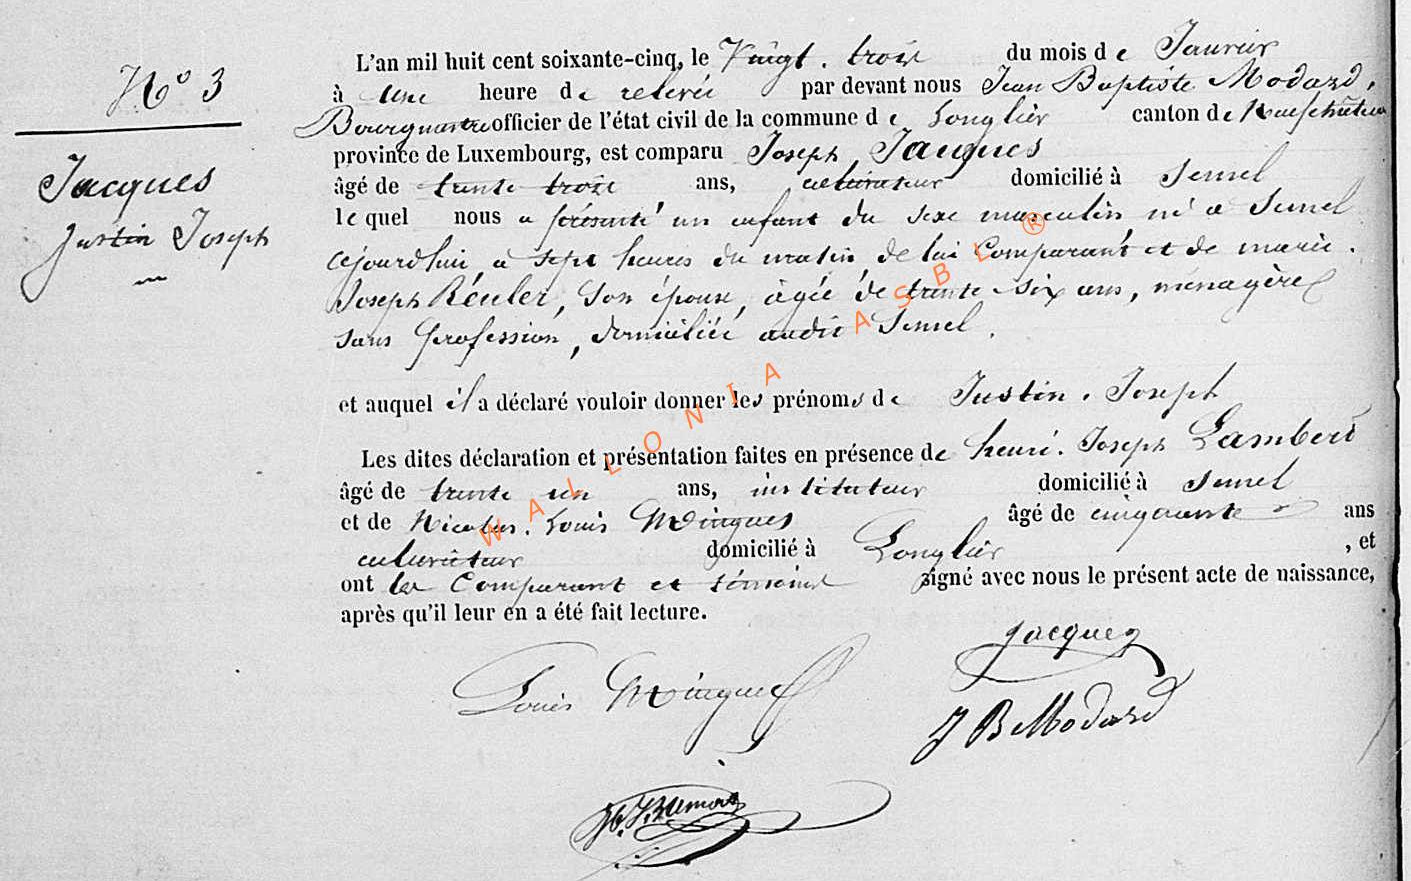 N° 3
Jacques
Justin Joseph
L'an mil huit cent soixante-cinq, le Vingt. trois du mois de Janvier
à une heure de relevée par devant nous Jean Baptiste Modard,
Bourgmestre officier de l'état civil de la commune de Longlier canton de Neufchâteau
province de Luxembourg, est comparu Joseph Jacques
âgé de trente trois ans, cultivateur domicilié à Semel
lequel nous a présenté un enfant du sexe masculin né a Semel
ajourdhui, a sept heures du matin de lui Comparant et de marie.
Joseph son épouse, âgée de trente six ans, ménagère
sans profession, domiciliée audit Semel.
et auquel il a déclaré vouloir donner les prénoms de Justin. Joseph
Les dites déclaration et présentation faites en présence de henri. Joseph Lambert
âgé de trente un ans, instituteur domicilié à Semel
et de Nicolas. Louis Mingues âgé de cinquante ans
cultivateur domicilié à Longlier, et
ont les Comparant et témoins signé avec nous le présent acte de naissance,
après qu'il leur en a été fait lecture.
Jacques
Louis Mingues
J B Modard
WALLONIA ASBL ®